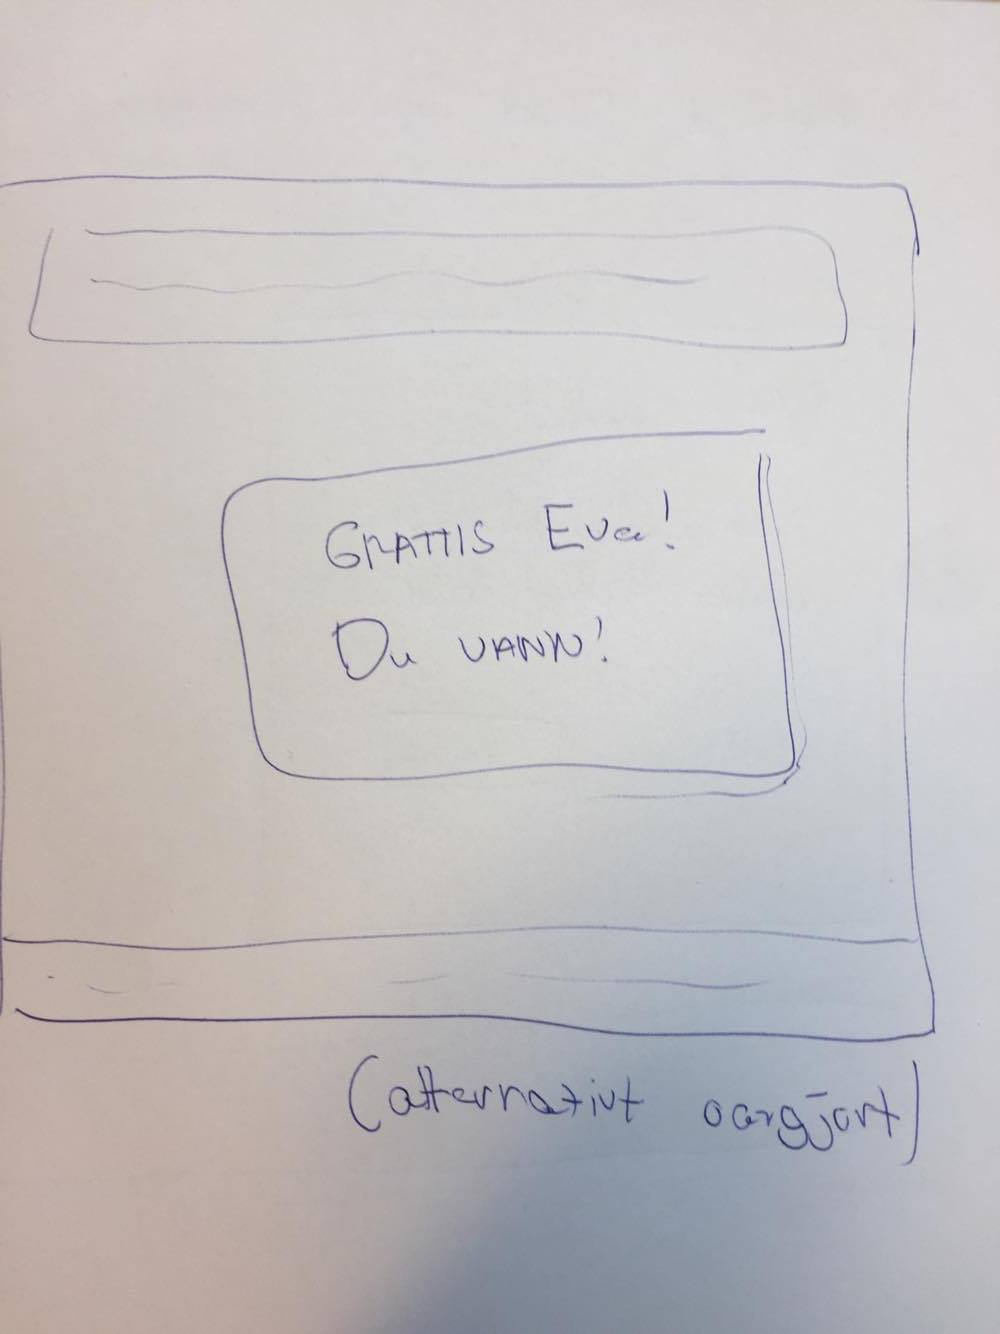 GRATTIS Eva!
Du VANN!
(alternativt oavgjort)